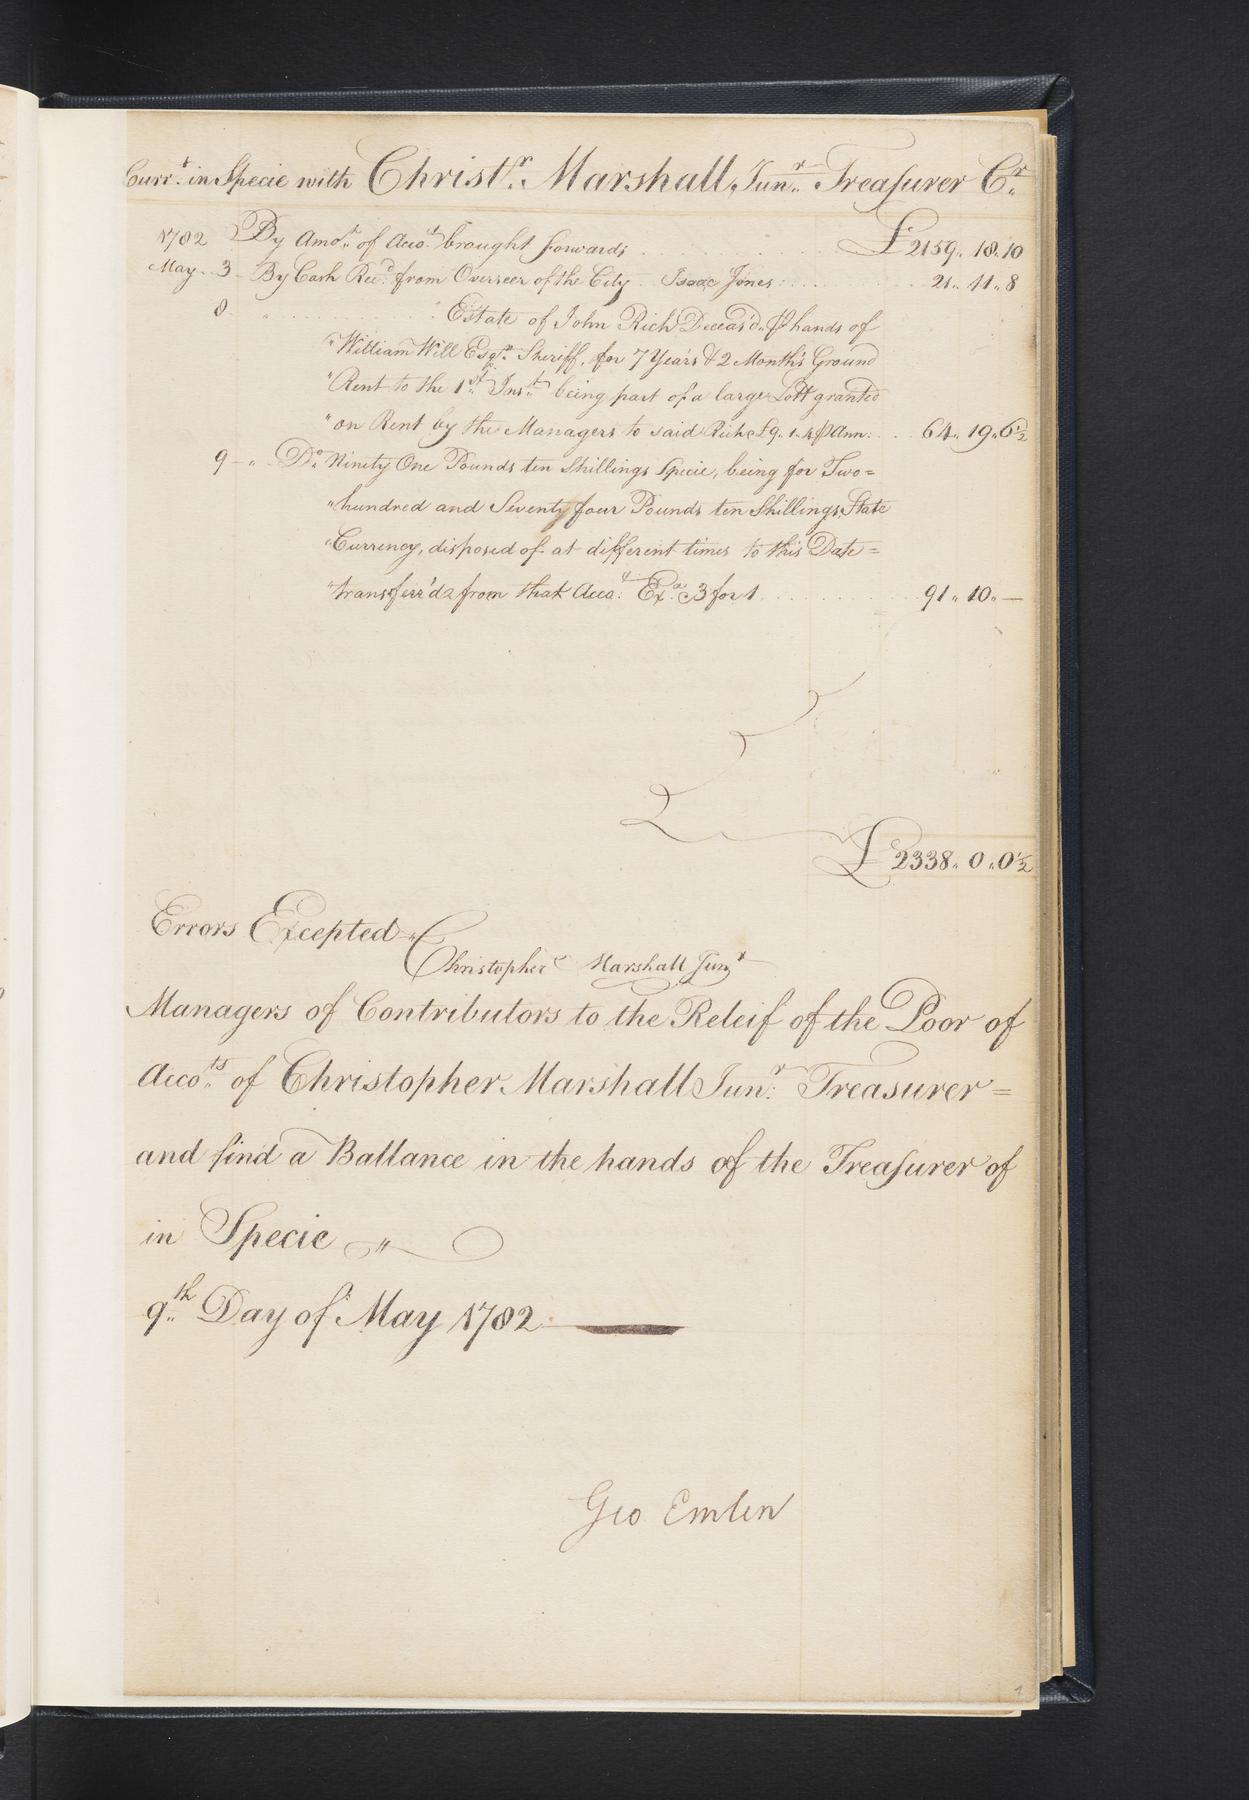 Curr.t in Specie with Christ.r Marshall Jun.r Treaſurer C.r
1782 By Amo.t of Acco.t brought forwards £ 2159.. 18.. 10
May.. 3 By Cash Rec.d from Overseer of the City Isaac Jones 21.. 11.. 8
8 " Estate of John Rich Deceas'd ⅌ hands of
"William Will Esq.r Sheriff, for 7 Years & 2 Months Ground
"Rent to the 1.st Ins.t being part of a large Lott granted
"on Rent by the Managers to said Rich @ £9. 1. 4 ⅌ Ann: 64.. 19.. 6½
9 " D.o Ninety One Pounds ten Shillings Specie, being for Two=
"hundred and Seventy four Pounds ten Shillings, State
"Currency, disposed of at different times to this Date=
"transferr'd from that Acco.t Ex.a @ 3 for 1 91.. 10.. —
£ 2338.. 0.. 0½
Errors Excepted
Christopher Marshall Jun.r
Managers of Contributors to the Releif of the Poor of
Acco.ts of Christopher Marshall Jun.r Treasurer=
and find a Ballance in the hands of the Treaſurer of
in Specie "
9.th Day of May 1782
Geo Emlen